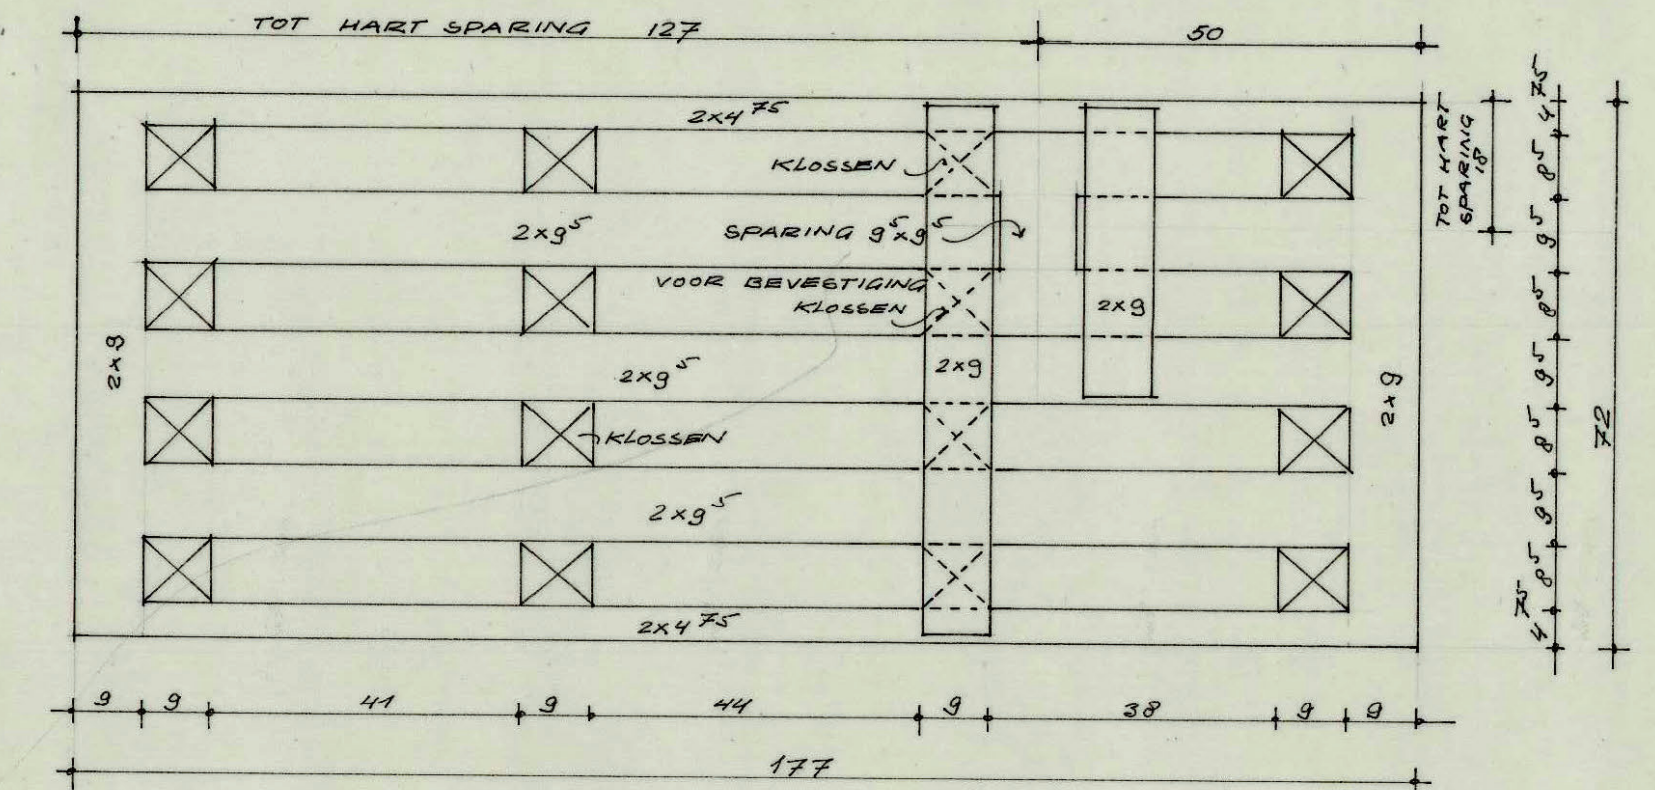 TOT HART SPARING 127
50
2×4⁷⁵
KLOSSEN
2×9⁵
SPARING 9⁵×9⁵
VOOR BEVESTIGING
KLOSSEN
2×9
2×9
2×9⁵
2×9
2×9
KLOSSEN
2×9⁵
2×4⁷⁵
TOT HART
SPARING
18
4⁷⁵
8⁵
9⁵
8⁵
9⁵
8⁵
9⁵
8⁵
4⁷⁵
72
9 9 41 9 44 9 38 9 9
177